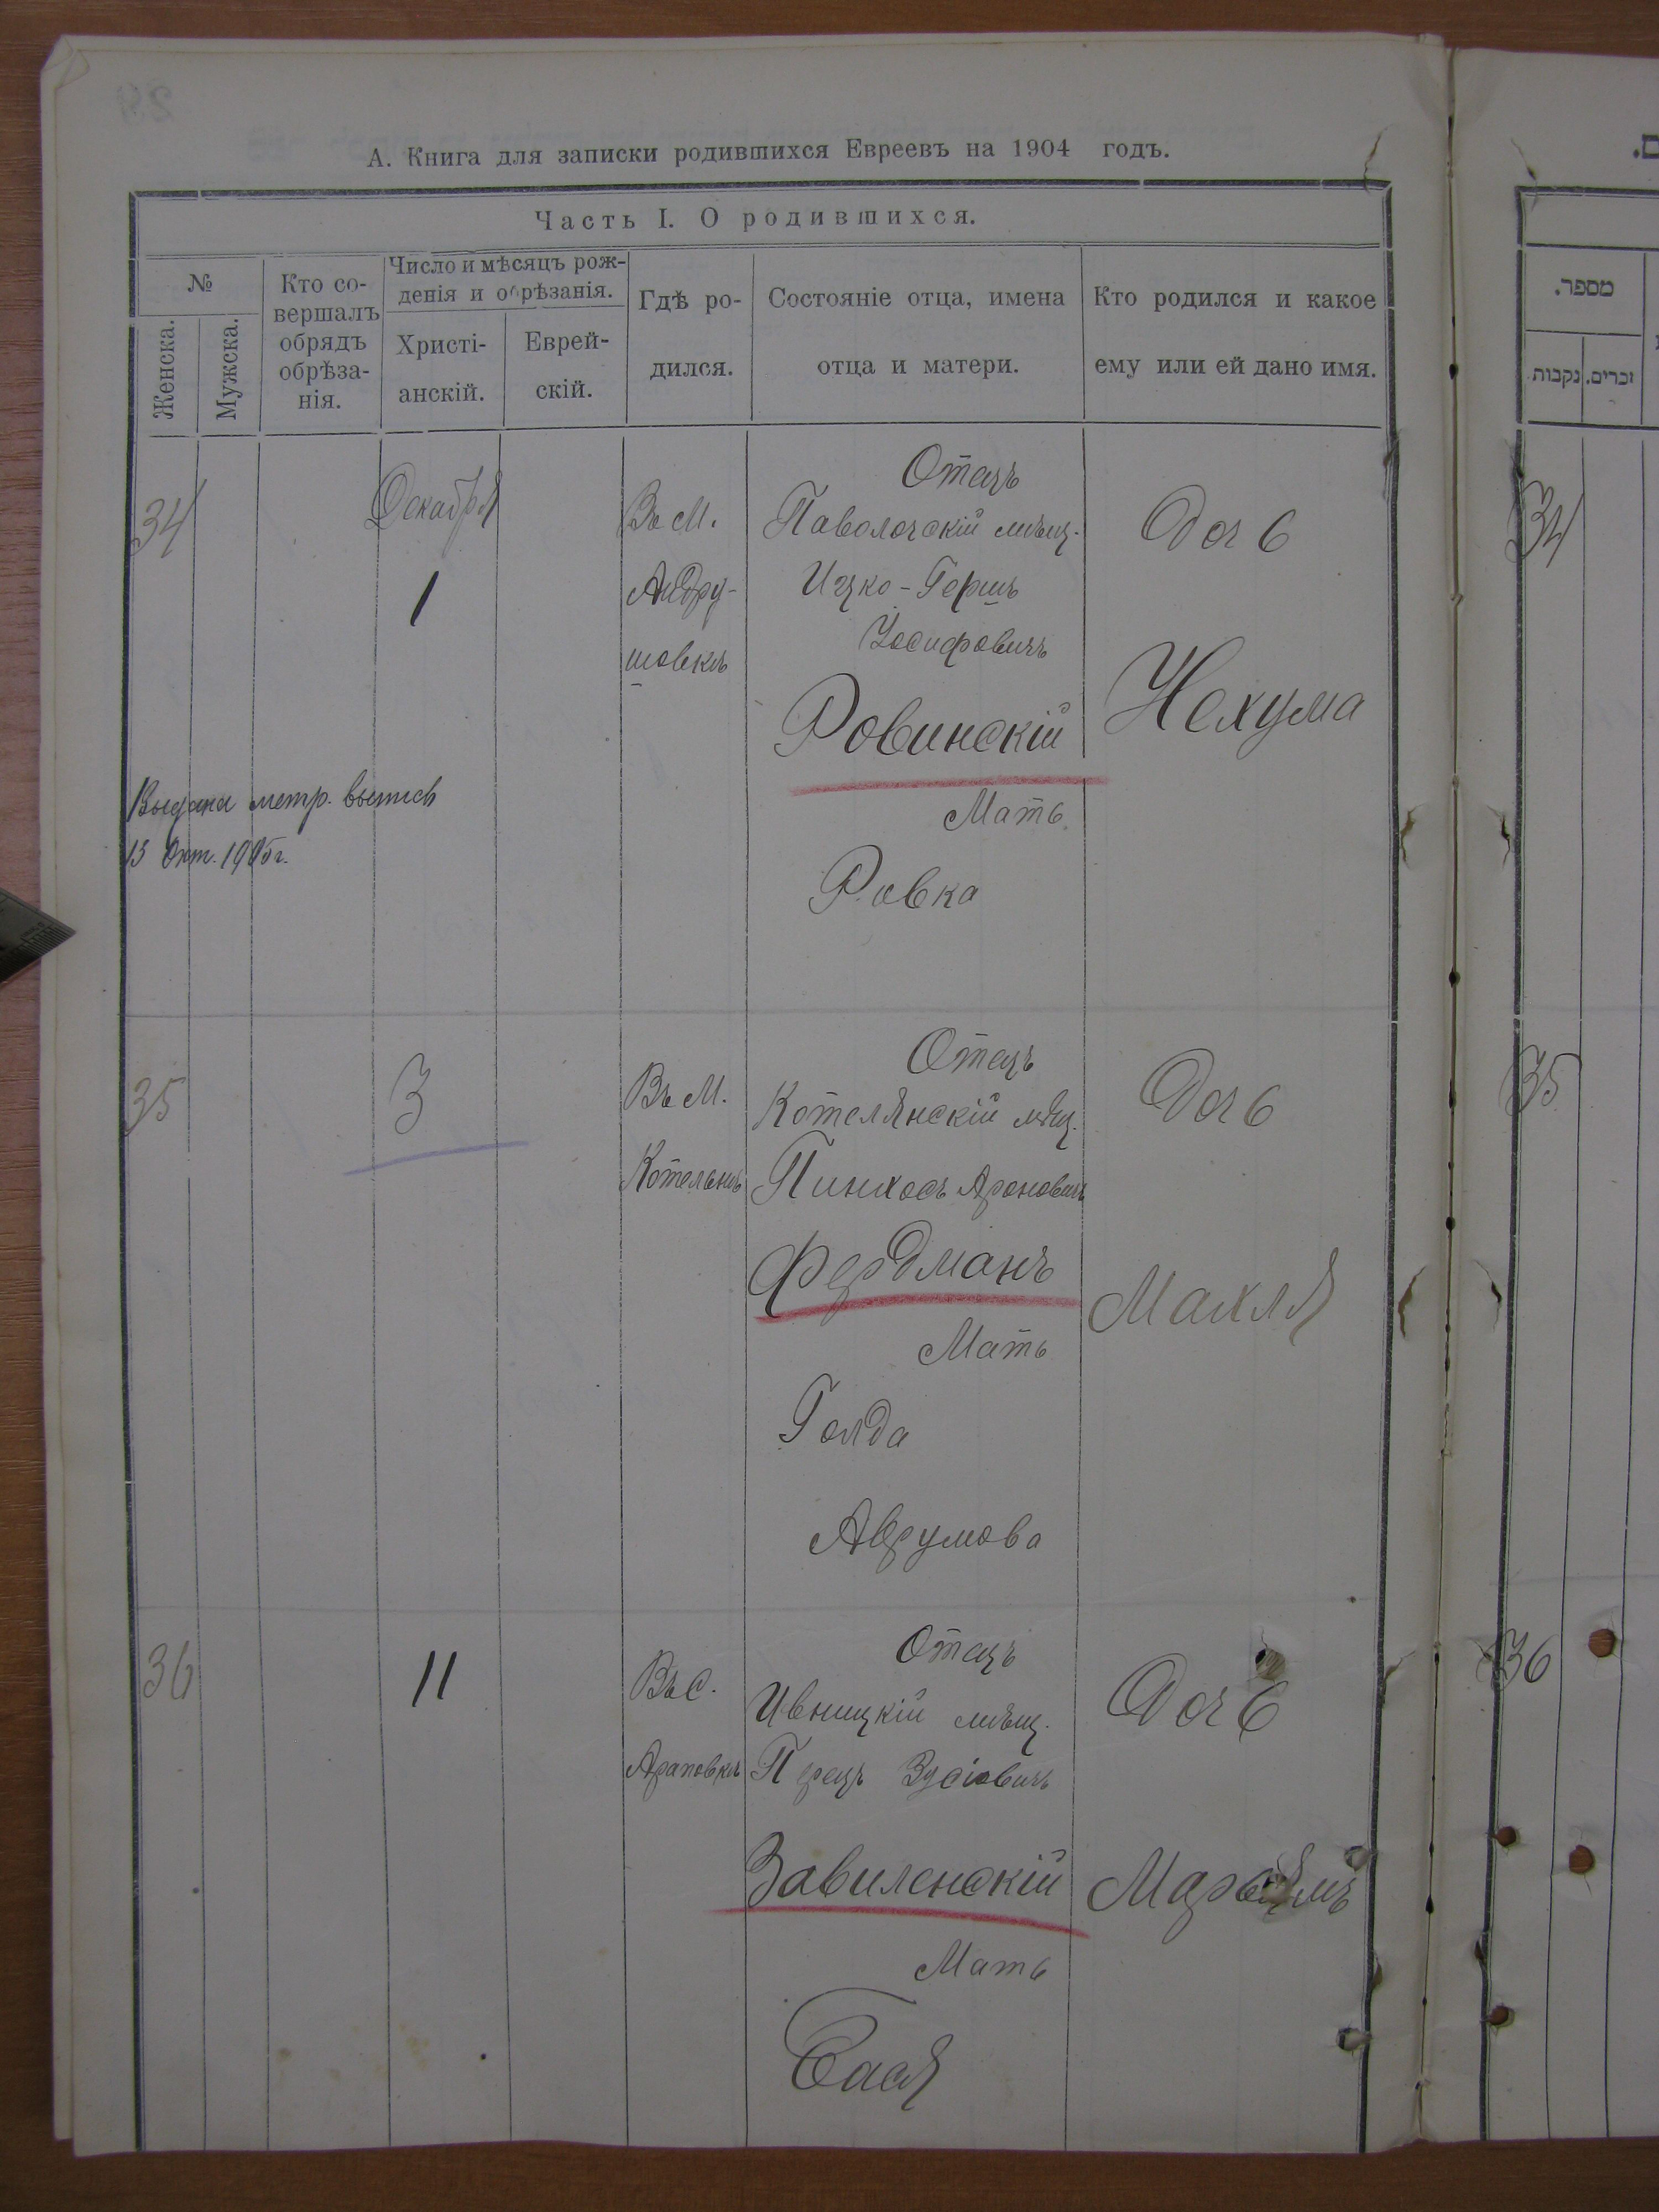 А. Книга для записки родившихся Евреевъ на 1904 годъ.
Часть I. О родившихся.
№
Женска.
Мужска.
Кто со-
вершалъ
обрядъ
обрѣза-
нія.
Число и мѣсяцъ рож-
денія и обрѣзанія.
Христі-
анскій.
Еврей-
скій.
Гдѣ ро-
дился.
Состояніе отца, имена
отца и матери.
Кто родился и какое
ему или ей дано имя.
34
Декабря
1
Въ М.
Андру-
шовкѣ
Отецъ
Паволочскій мѣщ.
Ицко-Гершъ
Іосифовичъ
Ровинскій
Мать
Ривка
Дочь
Нехума
Выдана метр. выпись
13 Окт. 1905г.
35
3
Въ М.
Котельнѣ
Отецъ
Котелянскій мѣщ.
Пинхосъ Ароновичъ
Фердманъ
Мать
Голда
Аврумова
Дочь
Махля
36
11
Въ С.
Араповкѣ
Отецъ
Ивницкій мѣщ.
Перецъ Зусіовичъ
Завиленскій
Мать
Бася
Дочь
מספר.
נקבות
זכרים.
34
35
36